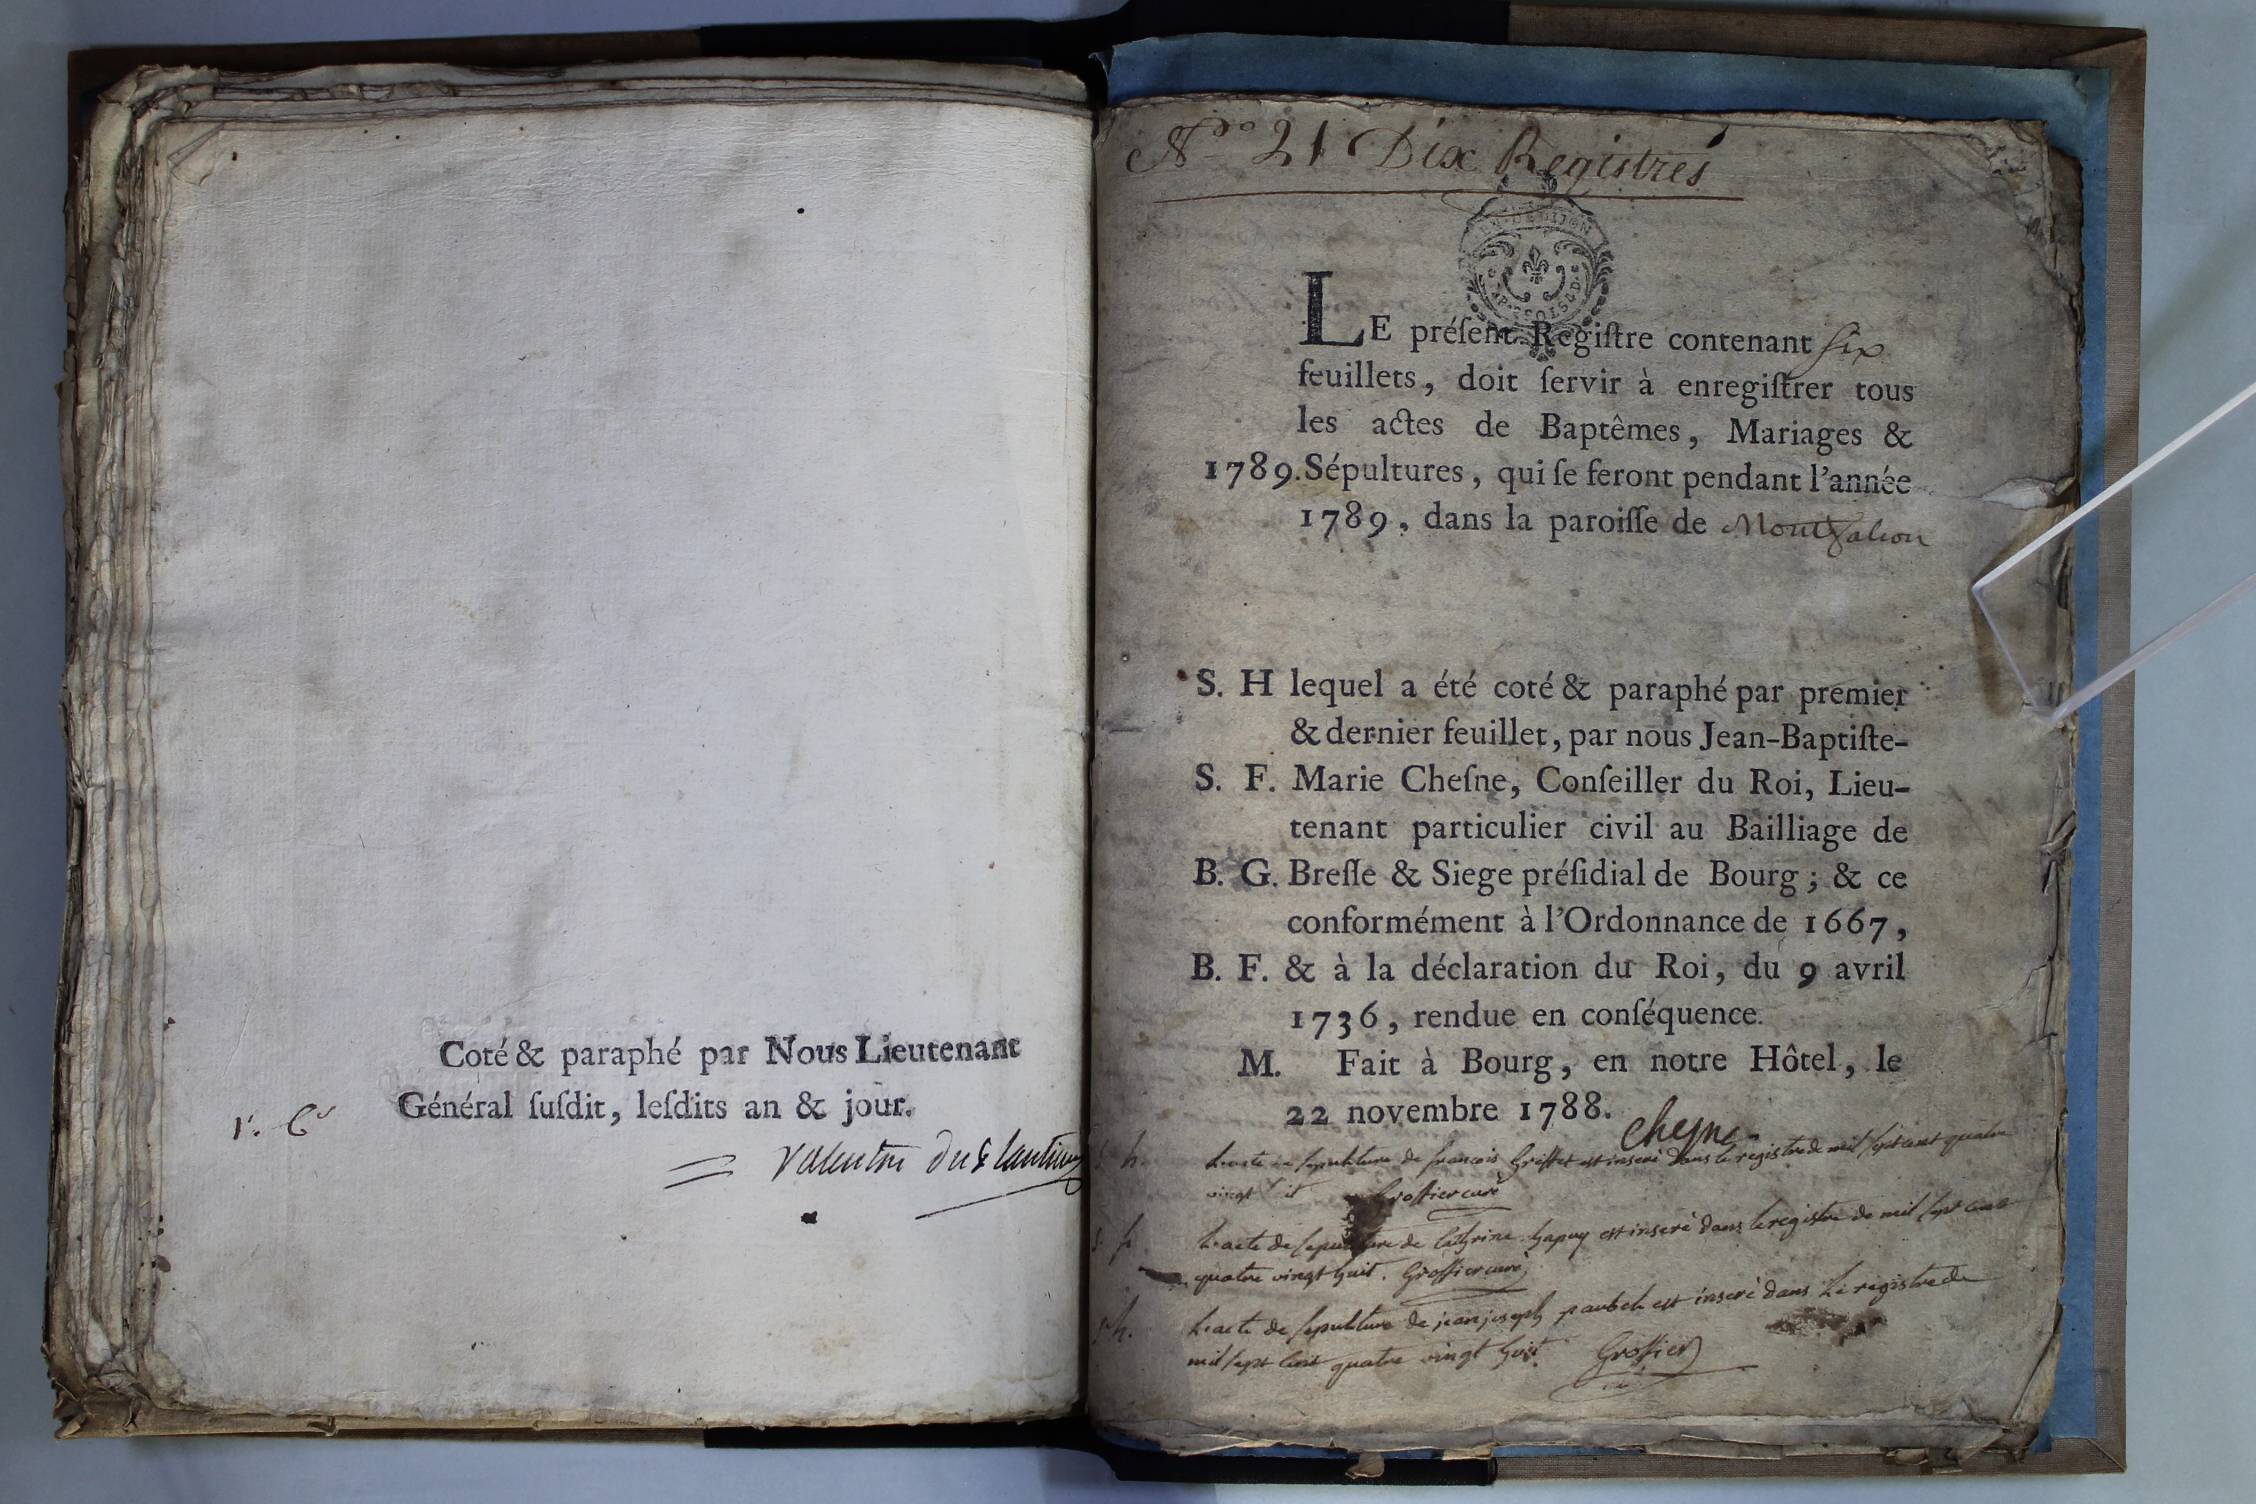 Coté & paraphé par Nous Lieutenant
Général ſuſdit, leſdits an & jour.
N.° 21 Dix Registres
LE préſent Regiſtre contenant six
feuillets, doit ſervir à enregiſtrer tous
les actes de Baptêmes, Mariages &
1789. Sépultures, qui ſe feront pendant l'année
1789, dans la paroiſſe de
S. H lequel a été coté & paraphé par premier
& dernier feuillet, par nous Jean-Baptiſte-
S. F. Marie Cheſne, Conſeiller du Roi, Lieu-
tenant particulier civil au Bailliage de
B. G. Breſſe & Siege préſidial de Bourg ; & ce
conformément à l'Ordonnance de 1667,
B. F. & à la déclaration du Roi, du 9 avril
1736, rendue en conſéquence.
M. Fait à Bourg, en notre Hôtel, le
22 novembre 1788.
Chesne
s. h. L'acte de sepulture de francois Griffet est inseré dans le registre de mil sept cent quatre
vingt Groffier curé
s. f. L'acte de sepulture de est inseré dans le registre de mil sept cent
quatre vingt huit. Groffier curé
s. h. L'acte de sepulture de jean joseph est inseré dans le registre de
mil sept cent quatre vingt huit Groffier